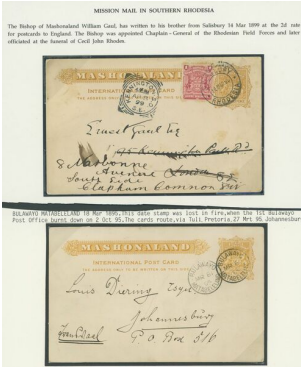 MISSION MAIL IN SOUTHERN RHODESIA
The Bishop of Mashonaland William Gaul, has written to his brother from Salisbury 14 Mar 1899 at the 2d rate
for postcards to England. The Bishop was appointed Chaplain - General of the Rhodesian Field Forces and later
officiated at the funeral of Cecil John Rhodes.
MASHONALAND
INTERNATIONAL POST CARD
KENSINGTON
Ernest Gaul Esq
8 Narbonne
Avenue
South Side
Clapham Common SW
BULAWAYO MATABELELAND 18 Mar 1896, This date stamp was lost in fire, when the 1st Bulawayo
Post Office burnt down on 2 Oct 95. The cards route, via Tuli, Pretoria, 27 Mrt 96 Johannesbur
MASHONALAND
INTERNATIONAL POST CARD
(THE ADDRESS ONLY TO BE WRITTEN ON THIS SIDE)
Louis Diering Esqr
Johannesburg
P O Box 516
Transvaal